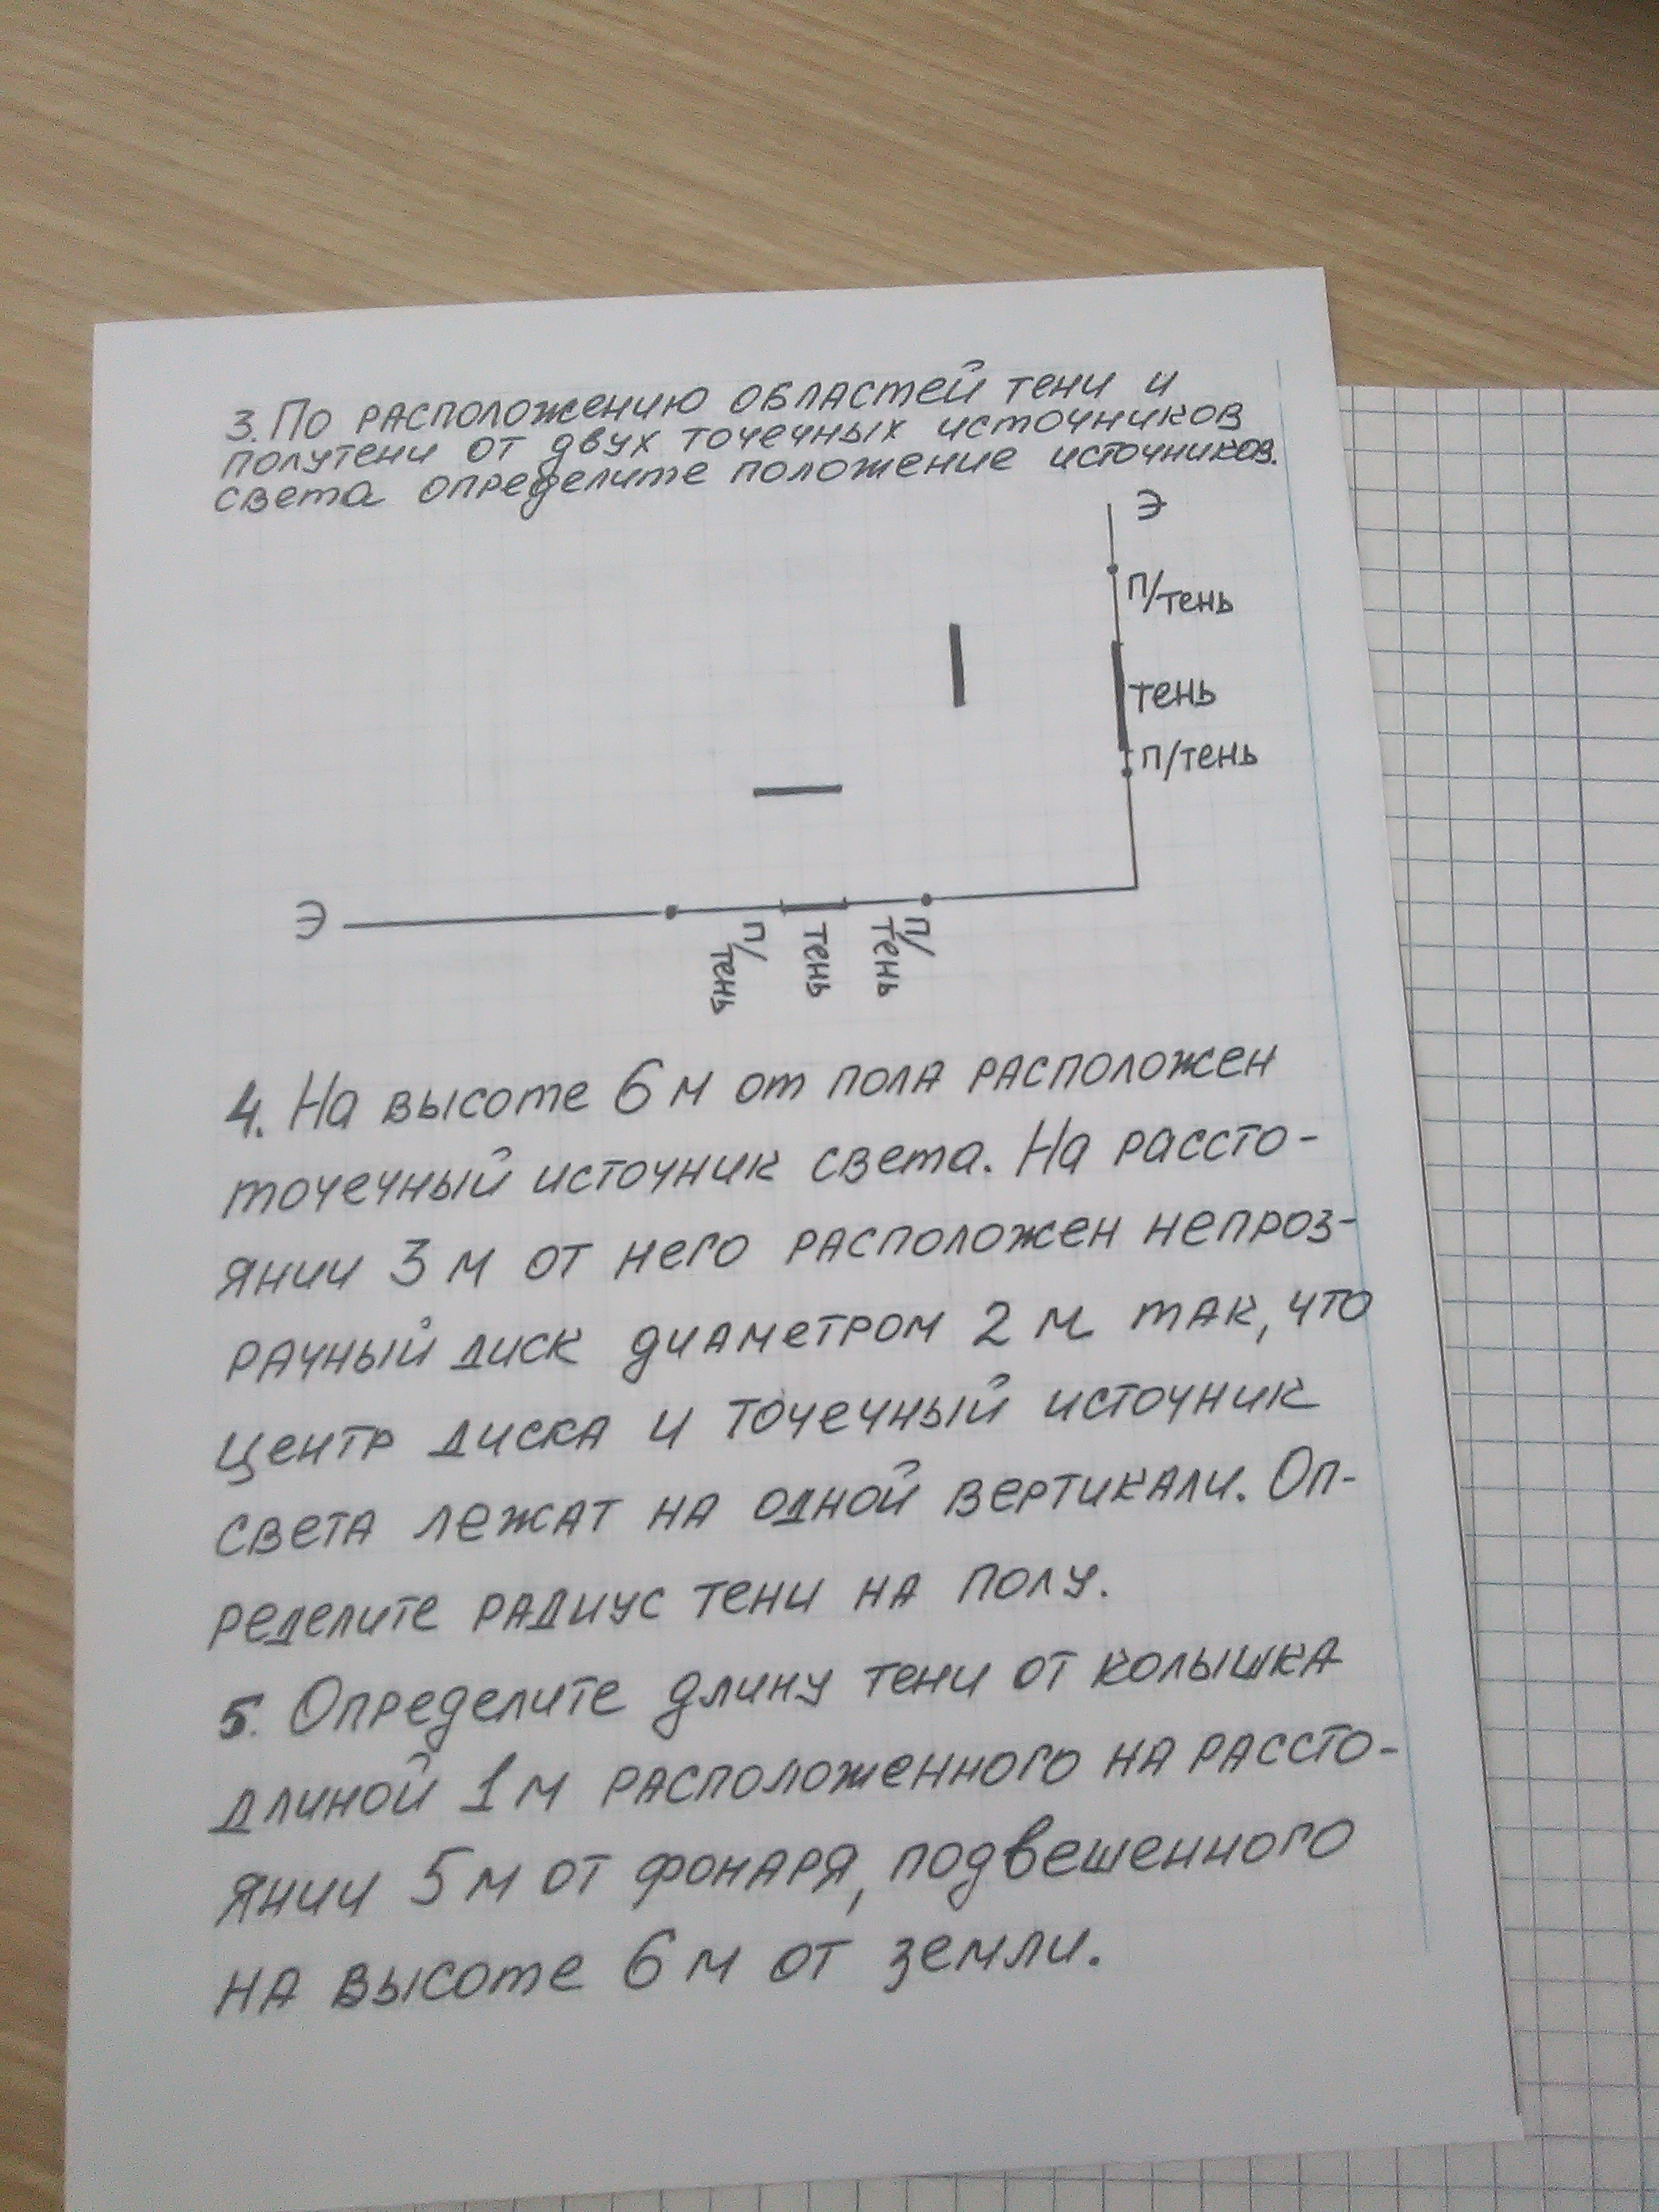 3. По расположению областей тени и
полутени от двух точечных источников
света определите положение источников.
Э
п/тень
тень
п/тень
Э
п/
тень
тень
п/
тень
4. На высоте 6 м от пола расположен
точечный источник света. На рассто-
янии 3 м от него расположен непроз-
рачный диск диаметром 2 м так, что
центр диска и точечный источник
света лежат на одной вертикали. Оп-
ределите радиус тени на полу.
5. Определите длину тени от колышка
длиной 1 м расположенного на рассто-
янии 5 м от фонаря, подвешенного
на высоте 6 м от земли.